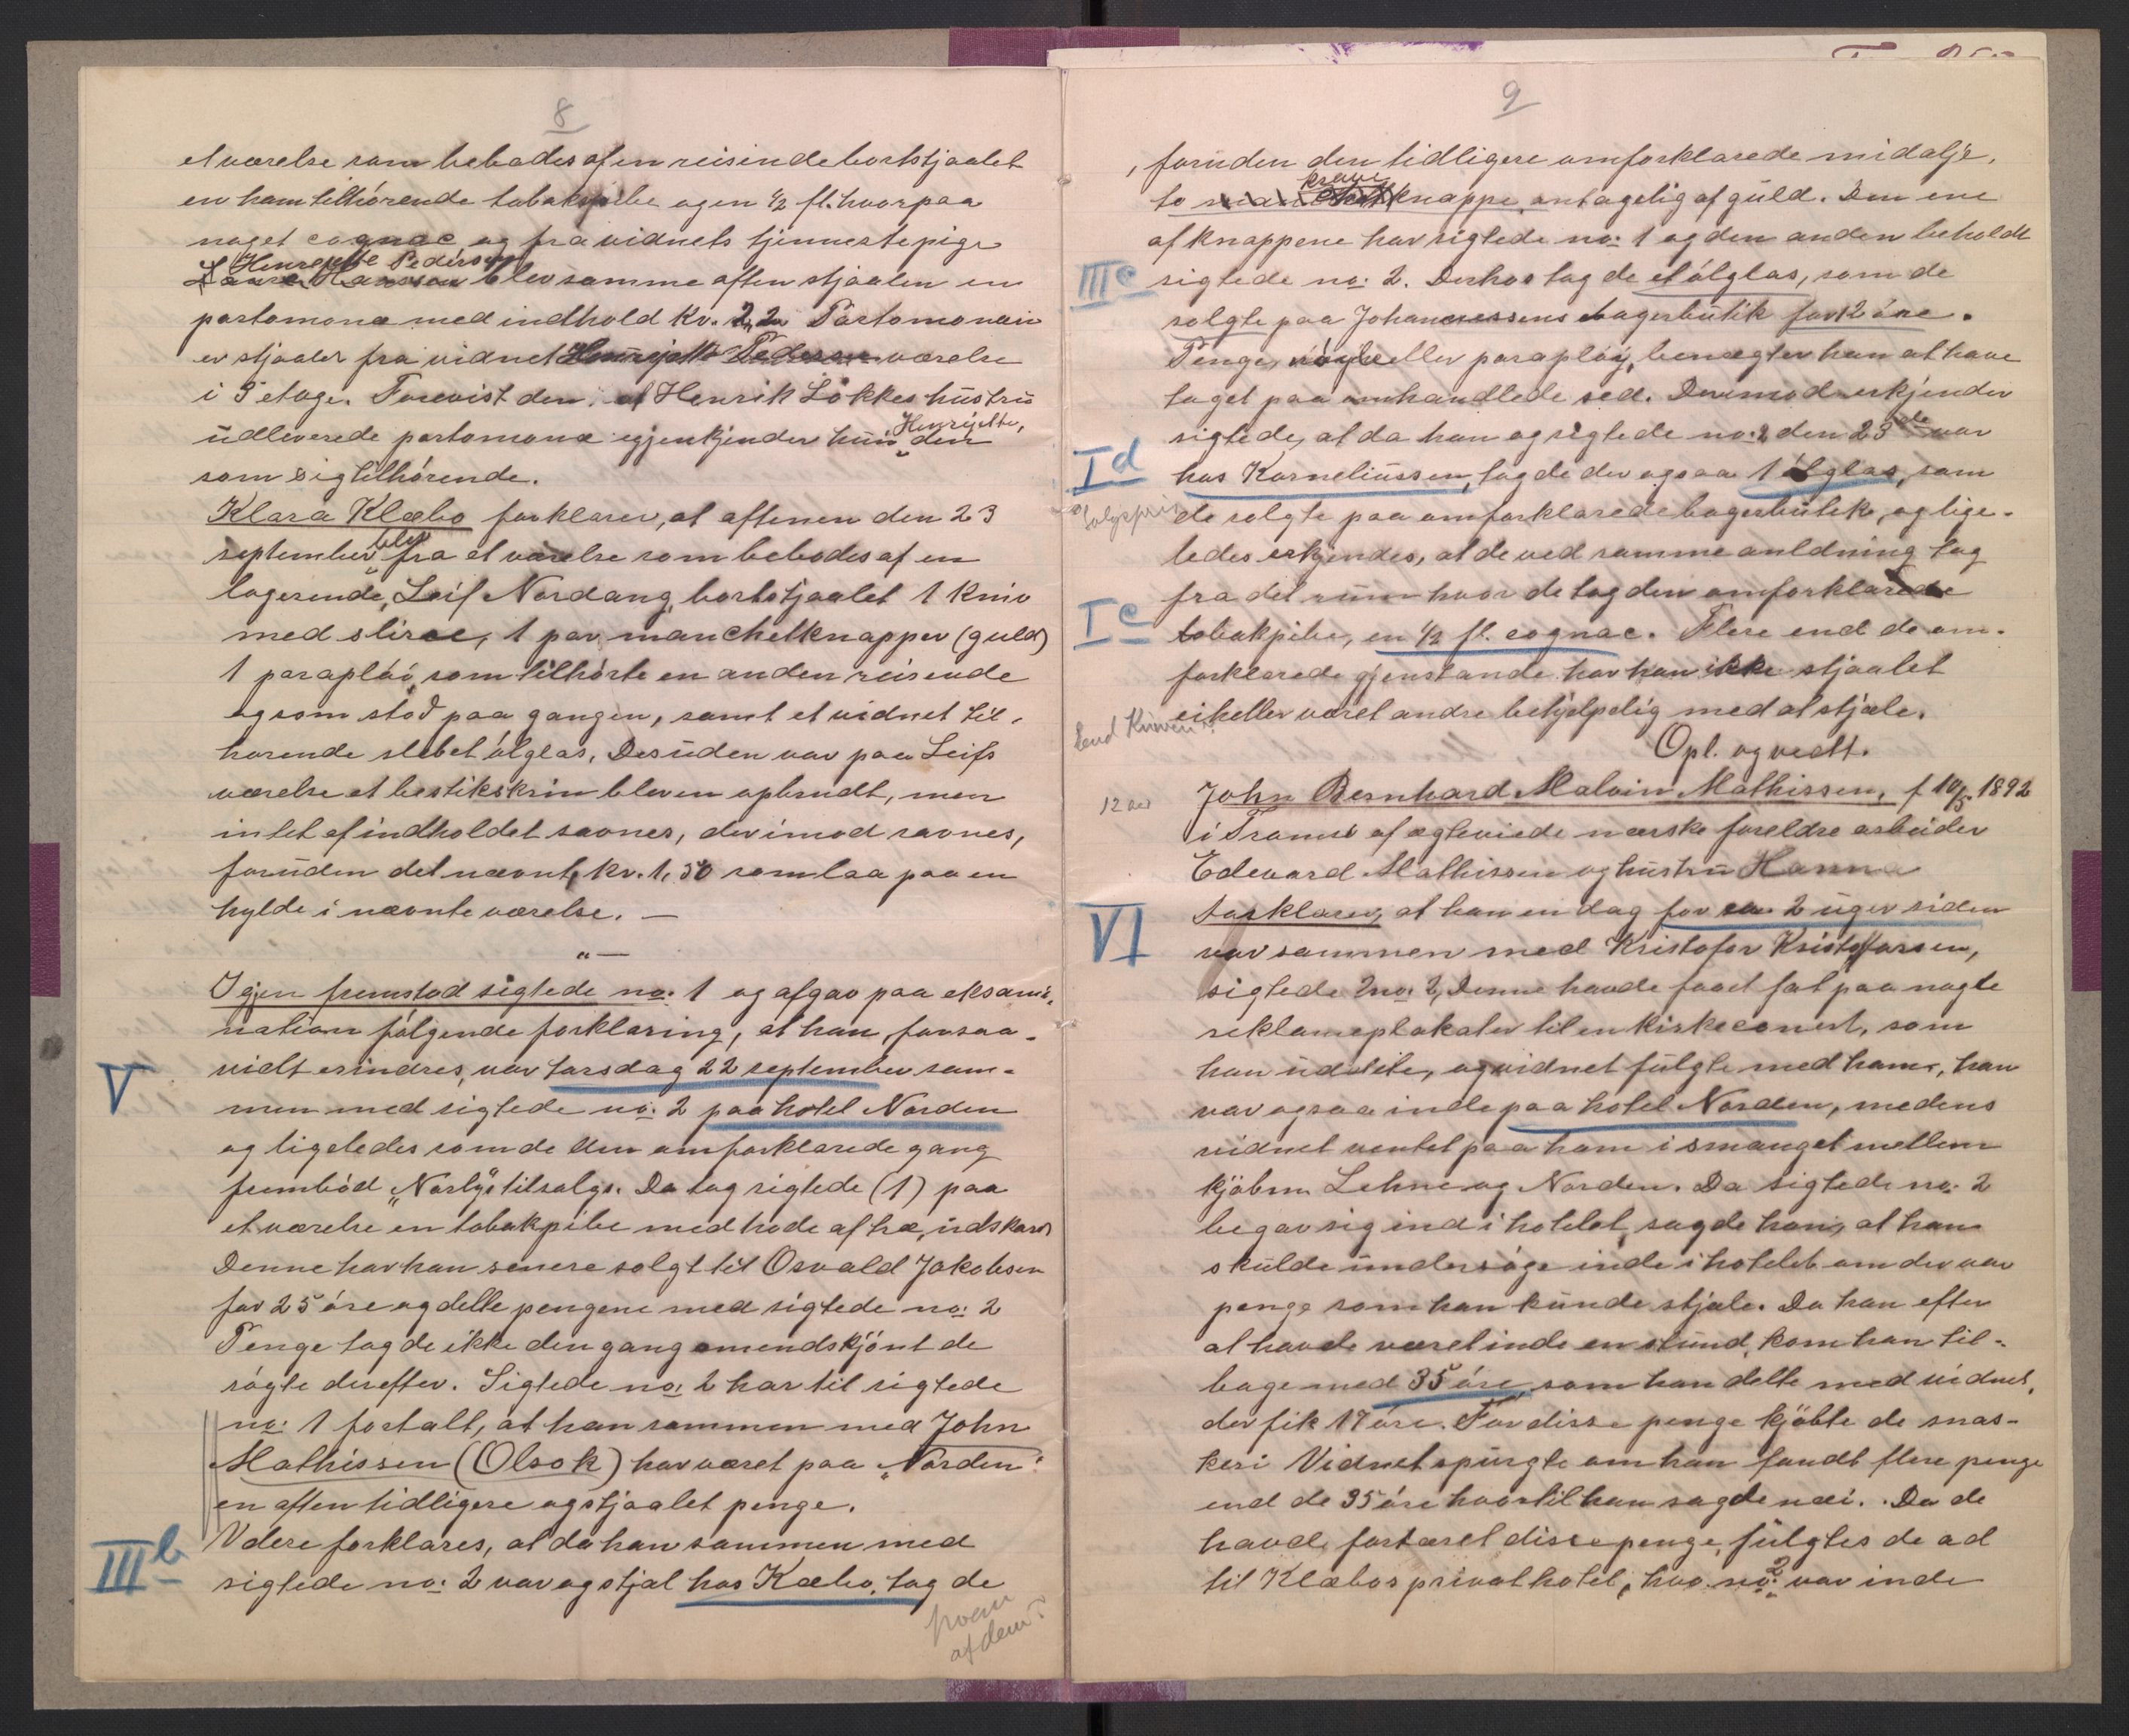 8
et værelse som bebodes af en reisende bortstjaalet
en ham tilhörende tobakspibe og en 1/2 fl. hvorpaa
noget cognac og fra vidnets tjennestepige
Henrejette Pedersen
blev samme aften stjaalen en
portomonæ med indhold Kr. 2,20 Portomonæn
er stjaalet fra vidnet Henrejette Pedersen værelse
i 3 etage. Forevist den af Henrik Lökkes hustru
udleverede portomonæ igjenkjender hun, Henrejette, den
som sig tilhörende.
Klara Klæbo forklarer, at aftenen den 23
september blev fra et værelse som bebodes af en
logerende, Leif Nordang, bortstjaalet 1 Kniv
med slire, 1 par manchetknapper (guld)
1 paraplöi, som tilhörte en anden reisende
og som stod paa gangen, samt et vidnet til-
hörende slebet ölglas. Desuden var paa Leifs
værelse et bestikskrin bleven opbrudt, men
intet af indholdet savnes, derimod savnes,
foruden det nævnte, kr. 1,50 som laa paa en
hylde i nævnte værelse. —
"—
Igjen fremstod sigtede no: 1 og afgav paa eksami-
nation fölgende forklaring, at han, forsaa-
V
vidt erindres, var torsdag 22 september sam-
men med sigtede no: 2 paa hotel Norden
og ligeledes som de den omforklarede gang
frembód "Norlys" tilsalgs. Da tog sigtede (1) paa
et værelse en tobakpibe med hode af træ, udskaret
Denne har han senere solgt til Osvald Jakobsen
for 25 öre og delte pengene med sigtede no: 2
Penge tog de ikke den gang omendskjönt de
sögte derefter. Sigtede no: 2 har til sigtede
no: 1 fortalt, at han sammen med John
Mathissen (Olsok) har været paa "Norden"
en aften tidligere og stjaalet penge.
IIIb
Videre forklares, at da han sammen med
sigtede no: 2 var og stjal hos Klæbo, tog de
hvem
af dem?
9
, foruden den tidligere omforklarede midalje,
krave
to knappe, antagelig af guld. Den ene
af knappene har sigtede no: 1 og den anden beholdt
IIIc
sigtede no: 2. Derhos tog de et ölglas, som de
solgte paa Johannessens bagerbutik for 12 öre.
Penge, eller paraplöy, benægter han at have
taget paa omhandlede sted. Derimod erkjender
sigtede, at da han og sigtede no: 2 den 23de var
Id
hos Korneliussen, tog de der ogsaa 1 ölglas, som
Salgspris
de solgte paa omforklarede bagerbutik, og lige-
ledes erkjendes, at de ved samme anldning tog
fra det rum hvor de tog den omforklarede
Ic
tobakpibe, en 1/2 fl. cognac. Flere end de om-
forklarede gjenstande har han ikke stjaalet
eiheller været andre behjelpelig med at stjæle.
End Kniven?
Opl. og vedt.
12 aar
John Bernhard Malvin Mathissen, f 10/5. 1892
i Tromsö af ægteviede norske foreldre arbeider
Edevard Mathissen og hustru Hanna
VI
forklarer, at han en dag for ca. 2 uger siden
var sammen med Kristofor Kristoffersen,
sigtede no: 2, Denne havde faaet fat paa nogle
reklameplakater til en kirkeconsert, som
han uddelte, og vidnet fulgte med ham, han
var ogsaa inde paa hotel Norden, medens
vidnet ventet paa ham i smauget mellem
kjöbm. Lehne og Norden. Da sigtede no: 2
begav sig ind i hotelet, sagde han, at han
skulde undersöge inde i hotelet om der var
penge som han kunde stjæle. Da han efter
at havde været inde en stund, kom han til-
bage med 35 öre, som han delte med vidnet,
der fik 17 öre. For disse penge kjöbte de snas-
keri Vidnet spurgte om han fandt flere penge
end de 35 öre hvortil han sagde nei. Da de
havde fortæret disse penge, fulgtes de ad
til Klæbos privathotel, hvo. no: 2 var inde